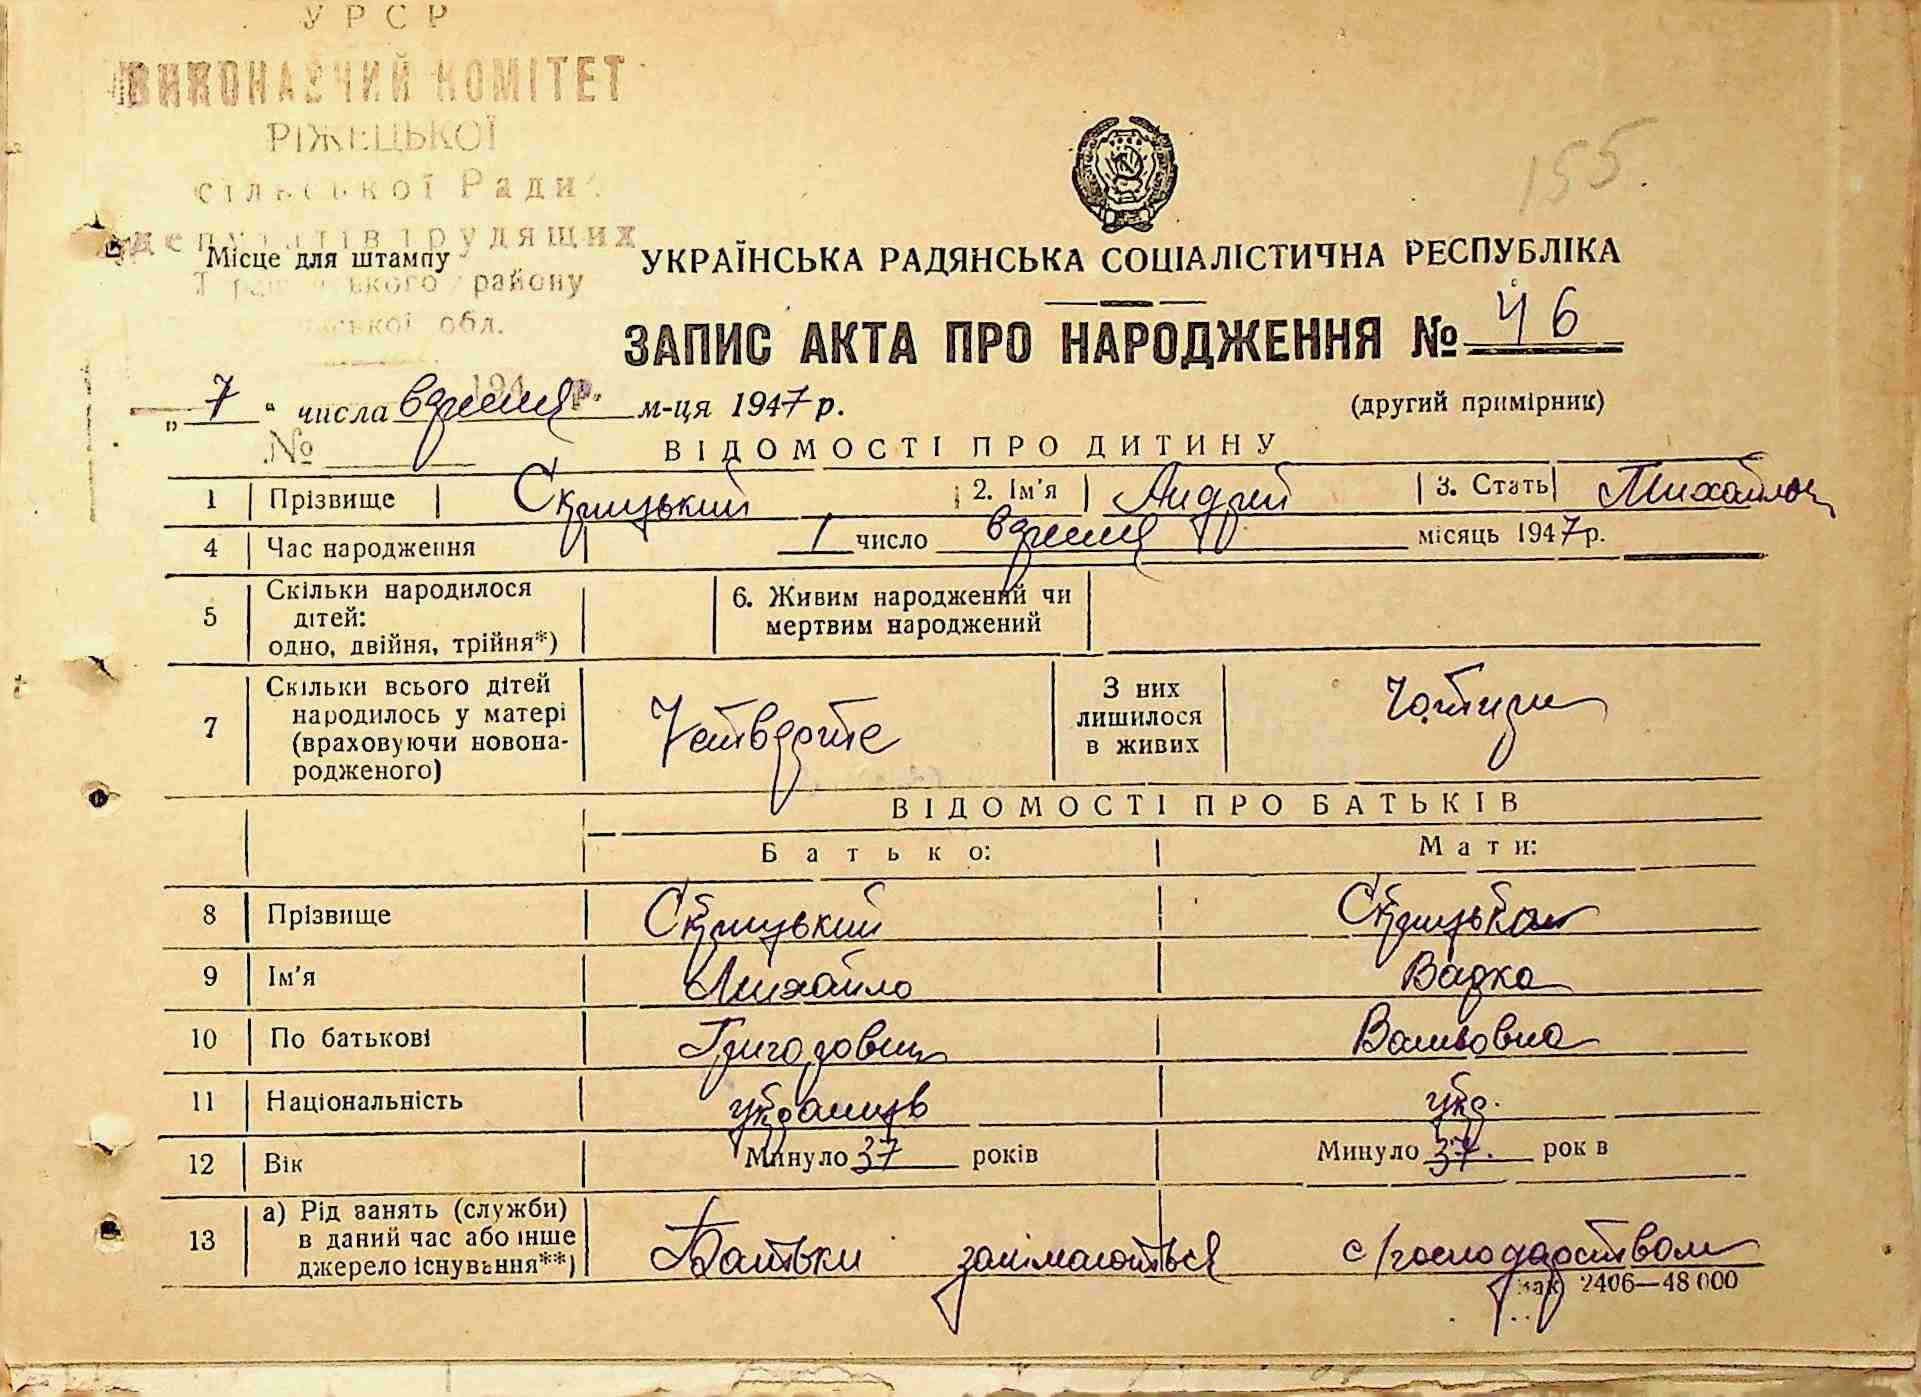 УРСР
ВИКОНАВЧИЙ КОМІТЕТ
РІЖЕЦЬКОЇ
сільської Ради
депутатів трудящих
району
обл.
155.
Місце для штампу
УКРАЇНСЬКА РАДЯНСЬКА СОЦІАЛІСТИЧНА РЕСПУБЛІКА
ЗАПИС АКТА ПРО НАРОДЖЕННЯ № 46
„ 7 “ числа вдесеня м-ця 1947 р. (другий примірник)
№
ВІДОМОСТІ ПРО ДИТИНУ
1 Прізвище Скрицький 2. Ім'я Андрій 3. Стать Михайлов
4 Час народження 1 число місяць 1947 р.
5 Скільки народилося дітей: одно, двійня, трійня*) 6. Живим народжений чи мертвим народжений
7 Скільки всього дітей народилось у матері (враховуючи новонародженого) Четверте З них лишилося в живих Чотири
ВІДОМОСТІ ПРО БАТЬКІВ
Батько: Мати:
8 Прізвище Скрицький Скрицька
9 Ім'я Михайло Варка
10 По батькові Григорович
11 Національність українців укр.
12 Вік Минуло 37 років Минуло 37. років
13 а) Рід занять (служби) в даний час або інше джерело існування**) Батьки занімаються с/господарством
Зак 2406—48 000